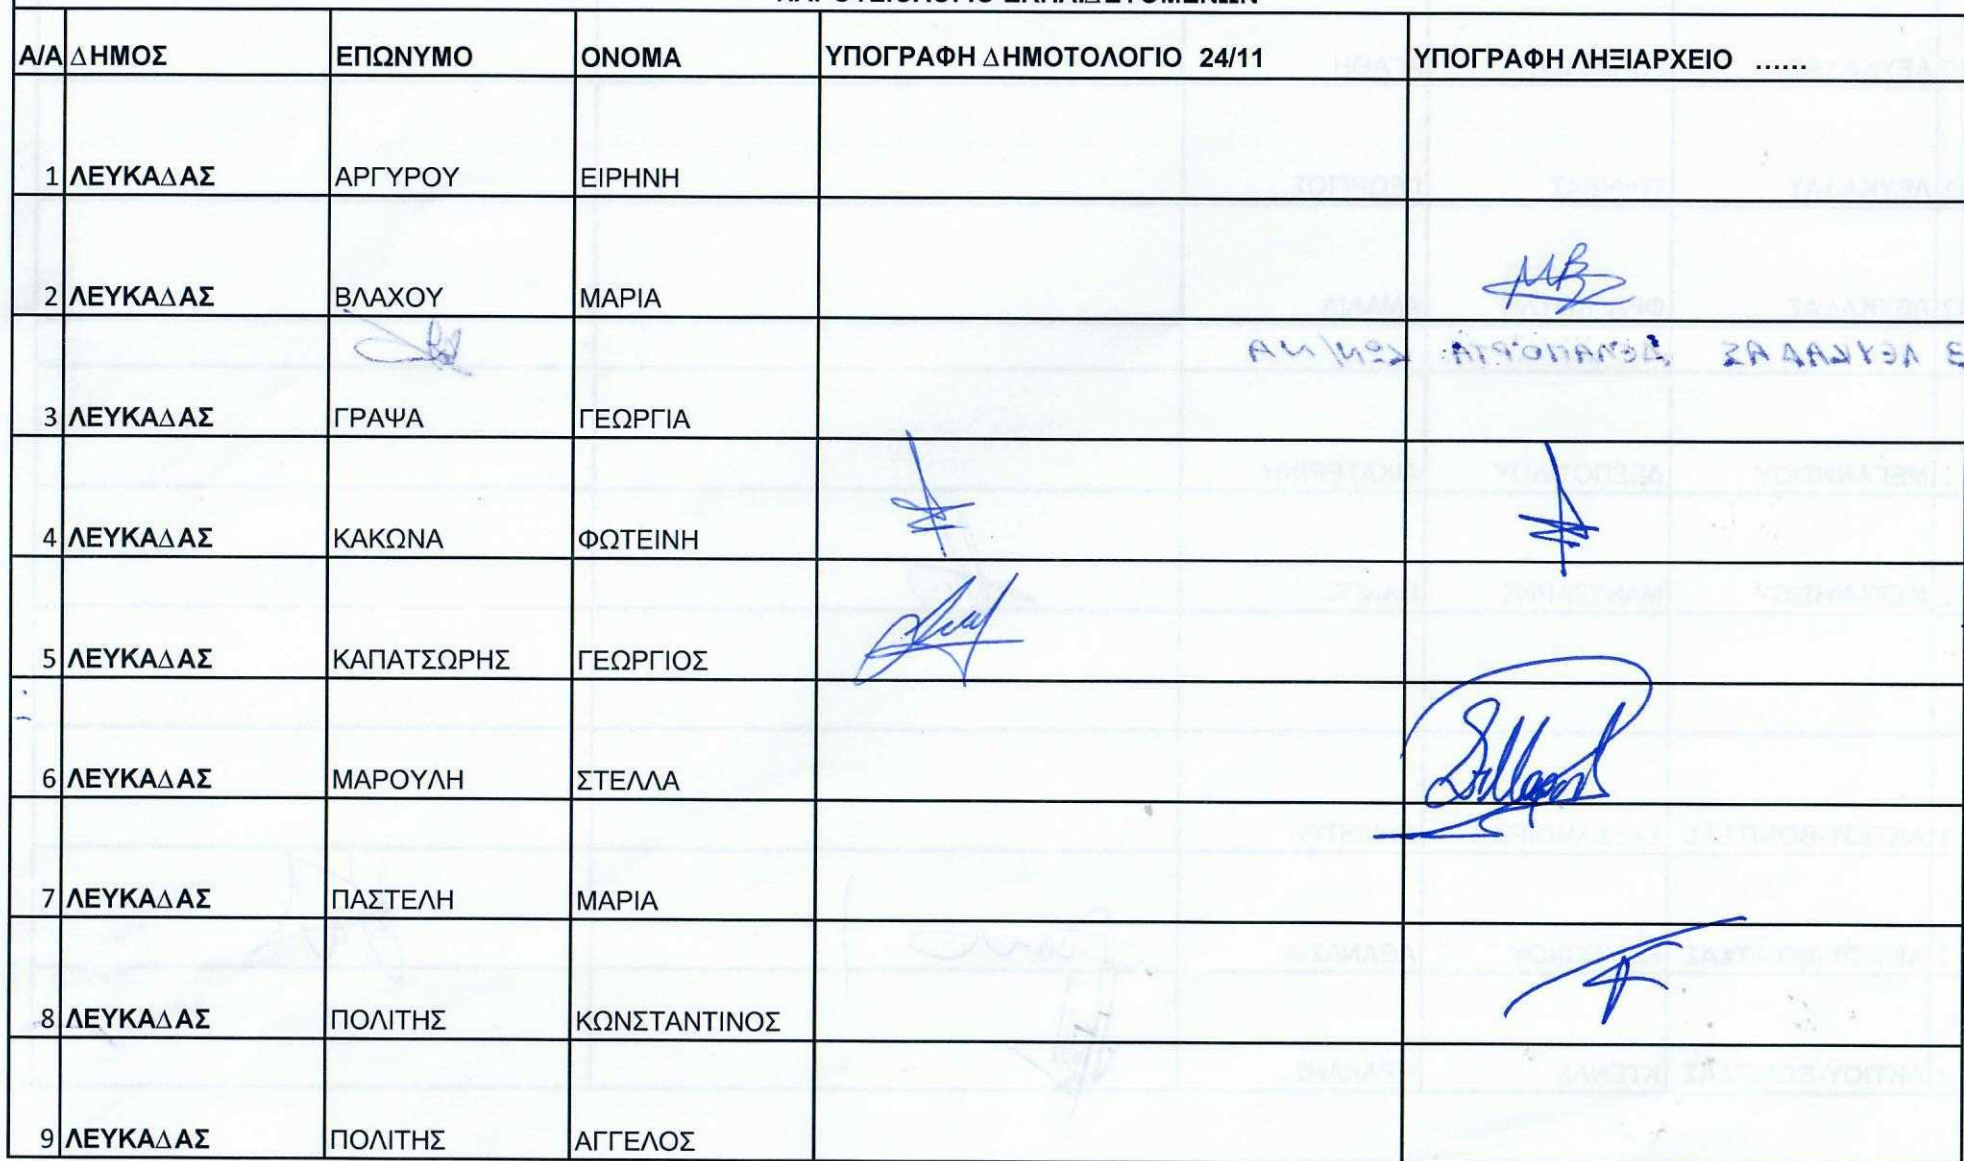 Α/Α ΔΗΜΟΣ ΕΠΩΝΥΜΟ ΟΝΟΜΑ ΥΠΟΓΡΑΦΗ ΔΗΜΟΤΟΛΟΓΙΟ 24/11 ΥΠΟΓΡΑΦΗ ΛΗΞΙΑΡΧΕΙΟ ......
1 ΛΕΥΚΑΔΑΣ ΑΡΓΥΡΟΥ ΕΙΡΗΝΗ
2 ΛΕΥΚΑΔΑΣ ΒΛΑΧΟΥ ΜΑΡΙΑ
3 ΛΕΥΚΑΔΑΣ ΓΡΑΨΑ ΓΕΩΡΓΙΑ
4 ΛΕΥΚΑΔΑΣ ΚΑΚΩΝΑ ΦΩΤΕΙΝΗ
5 ΛΕΥΚΑΔΑΣ ΚΑΠΑΤΣΩΡΗΣ ΓΕΩΡΓΙΟΣ
6 ΛΕΥΚΑΔΑΣ ΜΑΡΟΥΛΗ ΣΤΕΛΛΑ
7 ΛΕΥΚΑΔΑΣ ΠΑΣΤΕΛΗ ΜΑΡΙΑ
8 ΛΕΥΚΑΔΑΣ ΠΟΛΙΤΗΣ ΚΩΝΣΤΑΝΤΙΝΟΣ
9 ΛΕΥΚΑΔΑΣ ΠΟΛΙΤΗΣ ΑΓΓΕΛΟΣ